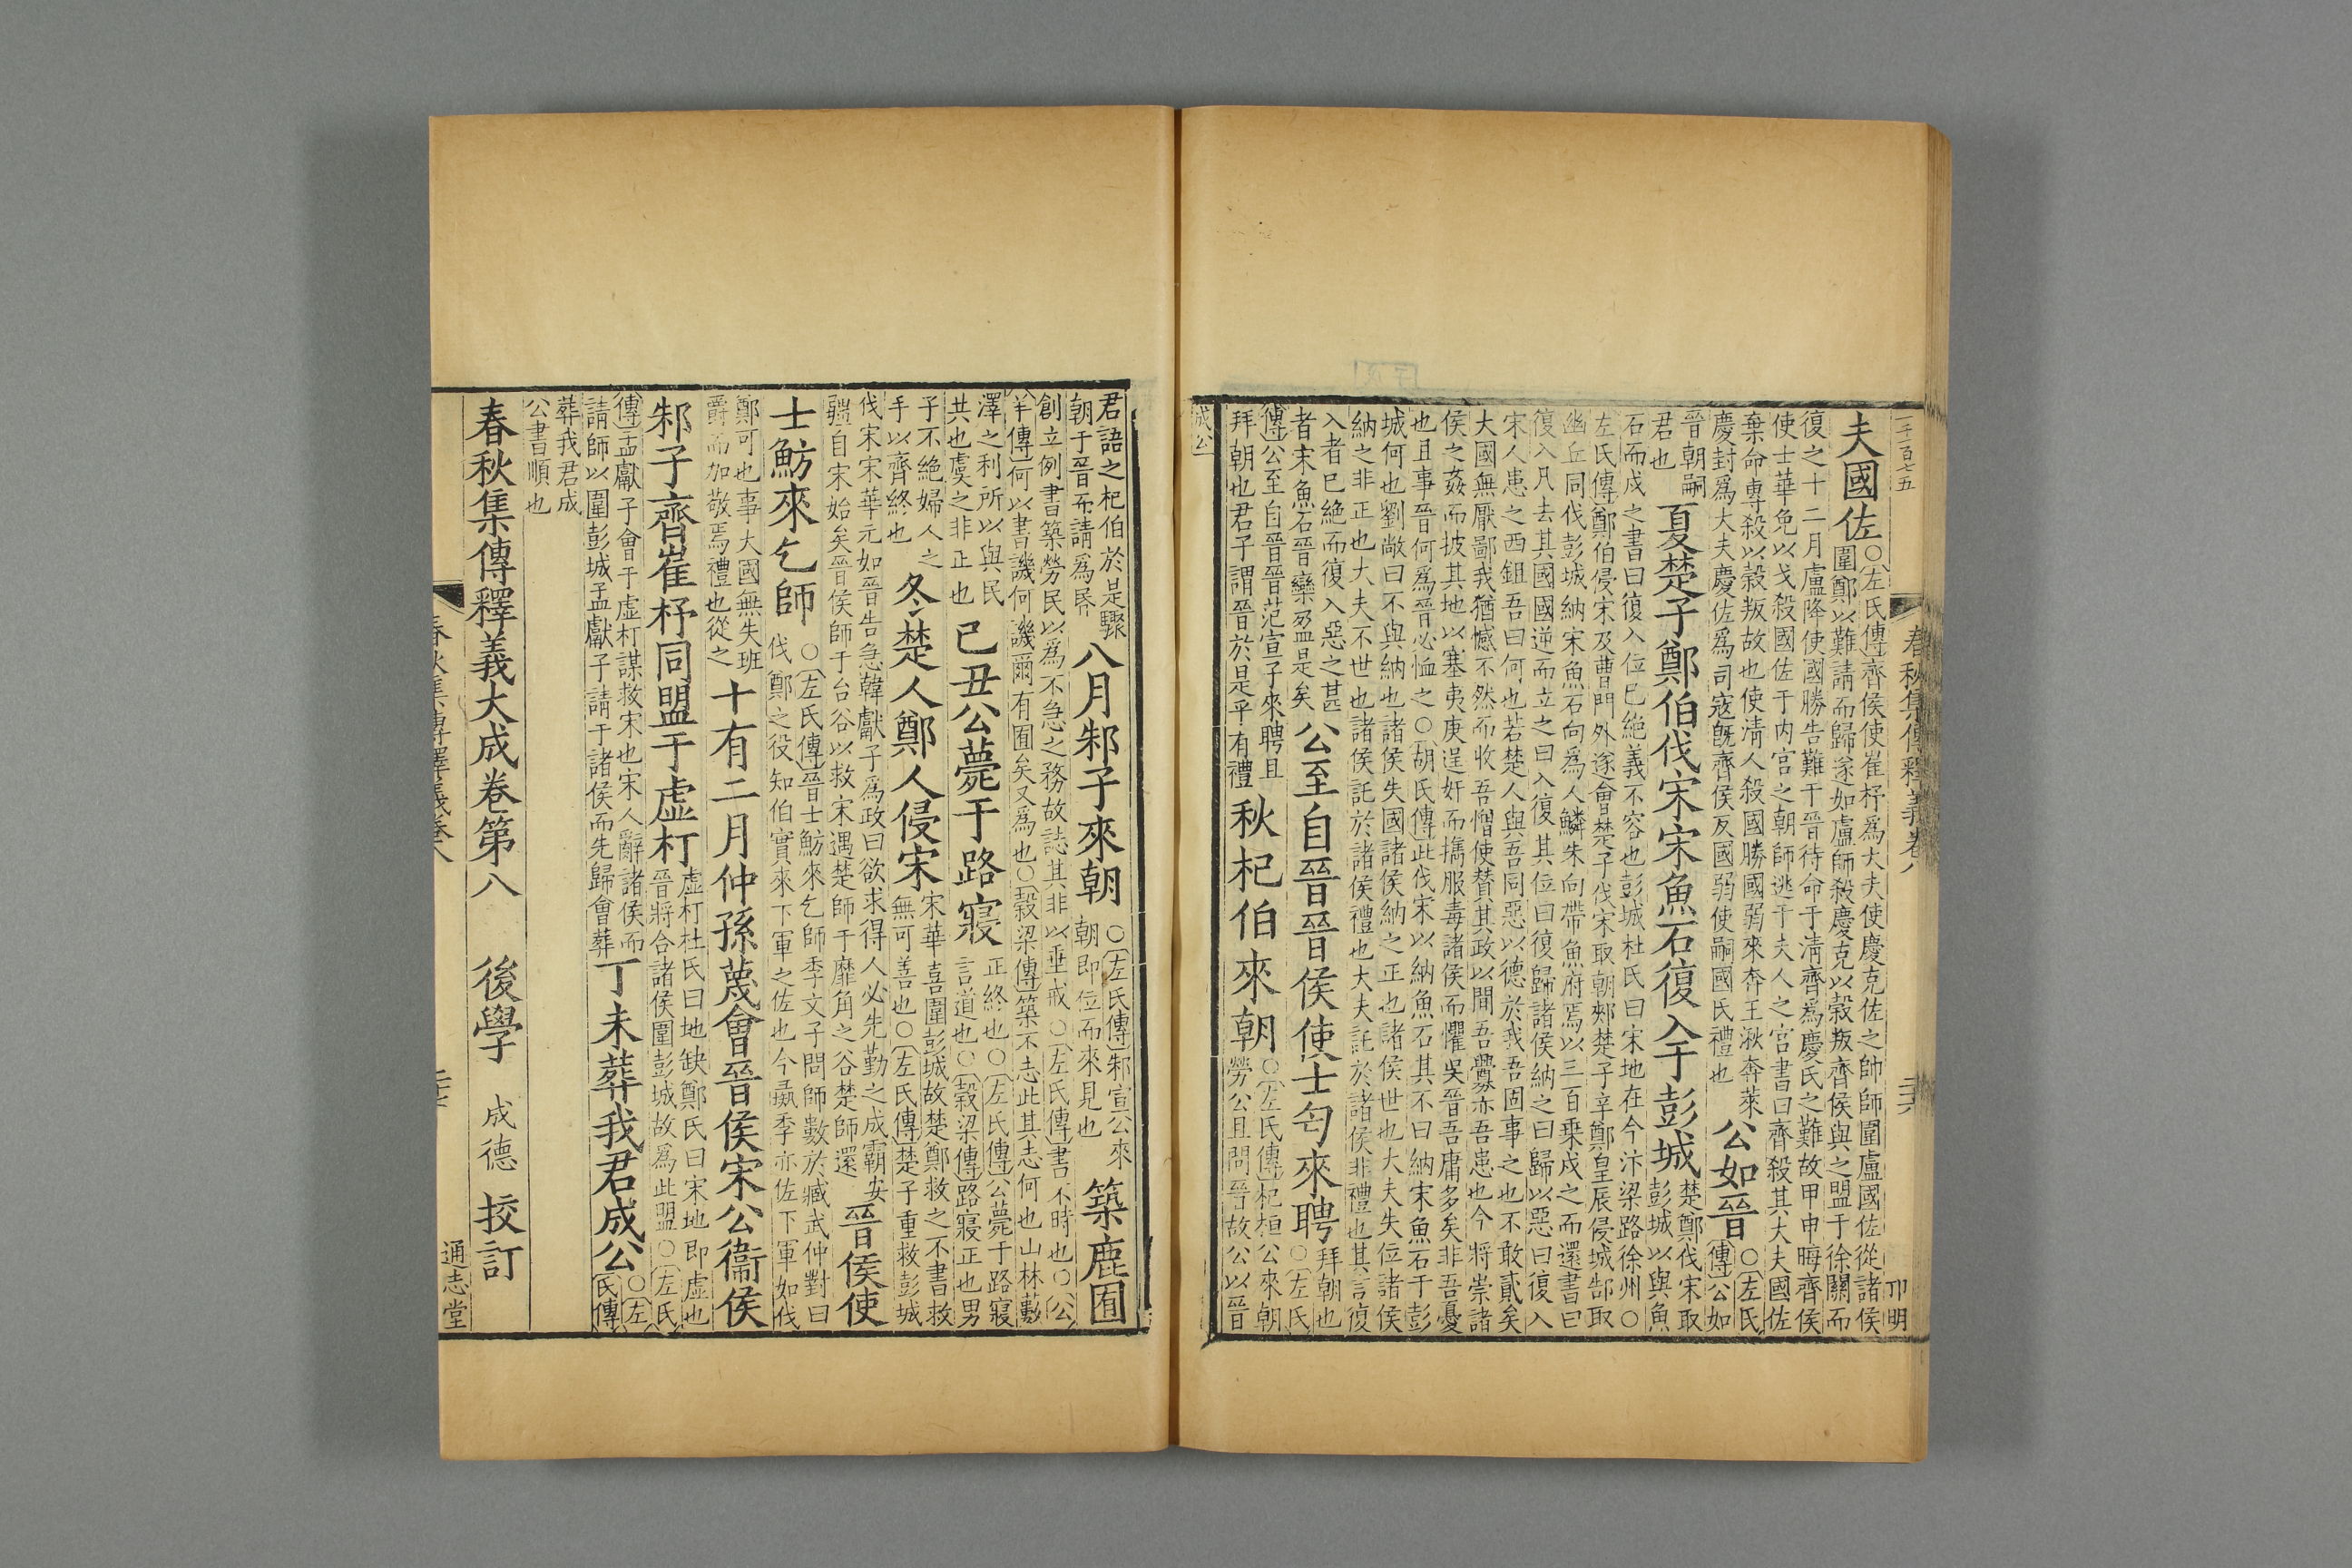 一千一百七五
春秋集傳釋義卷八
二十六
卭明
夫國佐
○左氏傳齊侯使崔杼爲大夫使慶克佐之帥師圍盧國佐從諸侯
圍鄭以難請而歸遂如盧師殺慶克以穀叛齊侯與之盟于徐關而
復之十二月盧降使國勝告難于晉待命于清齊爲慶氏之難故甲申晦齊侯
使士華免以戈殺國佐于内宮之朝師逃于夫人之宮書曰齊殺其大夫國佐
棄命專殺以穀叛故也使清人殺國勝國弱來奔王湫奔萊
慶封爲大夫慶佐爲司寇旣齊侯反國弱使嗣國氏禮也
公如晉
○左氏
傳公如
晉朝嗣
君也
夏楚子鄭伯伐宋宋魚石復入于彭城
楚鄭伐宋取
彭城以與魚
石而戍之書曰復入位已絶義不容也彭城杜氏曰宋地在今汴梁路徐州○
左氏傳鄭伯侵宋及曹門外遂會楚子伐宋取朝郟楚子辛鄭皇辰侵城郜取
幽丘同伐彭城納宋魚石向爲人鱗朱向帶魚府焉以三百乘戍之而還書曰
復入凡去其國國逆而立之曰入復其位曰復歸諸侯納之曰歸以惡曰復入
宋人患之西鉏吾曰何也若楚人與吾同惡以德於我吾固事之也不敢貳矣
大國無厭鄙我猶憾不然而收吾憎使贊其政以間吾釁亦吾患也今將崇諸
侯之姦而披其地以塞夷庚逞奸而攜服毒諸侯而懼吳晉吾庸多矣非吾憂
也且事晉何爲晉必恤之○胡氏傳此伐宋以納魚石其不曰納宋魚石于彭
城何也劉敞曰不與納也諸侯失國諸侯納之正也諸侯世也大夫失位諸侯
納之非正也大夫不世也諸侯託於諸侯禮也大夫託於諸侯非禮也其言復
入者已絶而復入惡之甚
者宋魚石晉欒盈是矣
公至自晉晉侯使士匄來聘
拜朝也
○左氏
傳公至自晉晉范宣子來聘且
拜朝也君子謂晉於是乎有禮
秋杞伯來朝
○左氏傳杞桓公來朝
勞公且問晉故公以晉
成公
君語之杞伯於是驟
朝于晉而請爲昬
八月邾子來朝
○左氏傳邾宣公來
朝即位而來見也
築鹿囿
創立例書築勞民以爲不急之務故誌其非以垂戒○左氏傳書不時也○公
羊傳何以書譏何譏爾有囿矣又爲也○穀梁傳築不志此其志何也山林藪
澤之利所以與民
共也虞之非正也
已丑公薨于路寢
正終也○左氏傳公薨于路寢
言道也○穀梁傳路寢正也男
子不絶婦人之
手以齊終也
冬楚人鄭人侵宋
宋華喜圍彭城故楚鄭救之不書救
無可善也○左氏傳楚子重救彭城
伐宋宋華元如晉告急韓獻子爲政曰欲求得人必先勤之成霸安
疆自宋始矣晉侯師于台谷以救宋遇楚師于靡角之谷楚師還
晉侯使
士魴來乞師
○左氏傳晉士魴來乞師季文子問師數於臧武仲對曰
伐鄭之役知伯實來下軍之佐也今彘季亦佐下軍如伐
鄭可也事大國無失班
爵而加敬焉禮也從之
十有二月仲孫蔑會晉侯宋公衞侯
邾子齊崔杼同盟于虛朾
虛朾杜氏曰地缺鄭氏曰宋地即虛也
晉將合諸侯圍彭城故爲此盟○左氏
傳孟獻子會于虛朾謀救宋也宋人辭諸侯而
請師以圍彭城孟獻子請于諸侯而先歸會葬
丁未葬我君成公
○左
氏傳
葬我君成
公書順也
春秋集傳釋義大成卷第八
後學
成德
挍訂
春秋集傳釋義卷八
二十七
通志堂